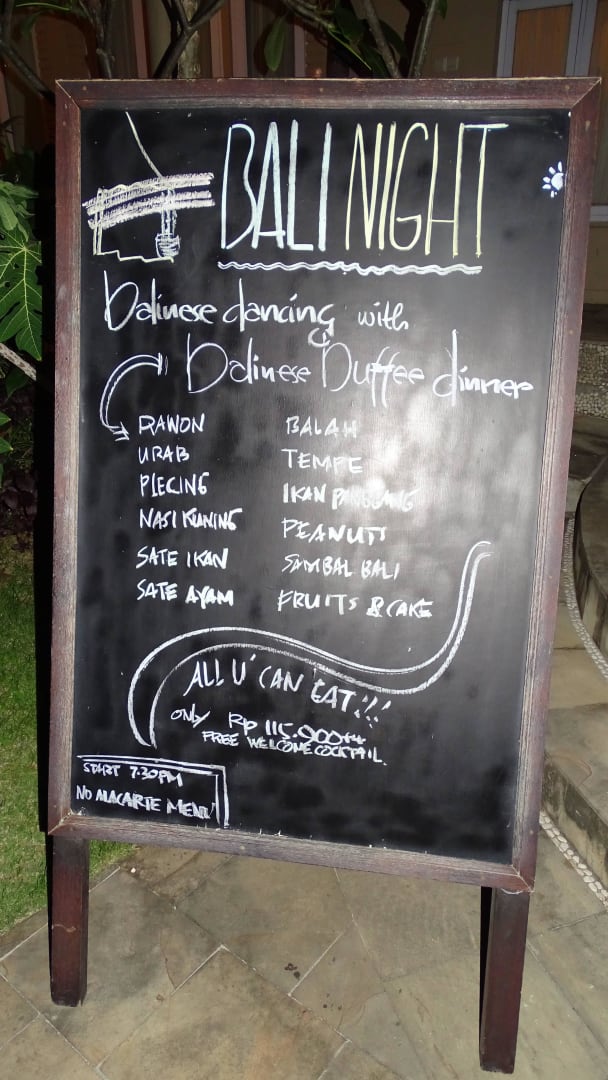 BALI NIGHT
Balinese dancing with
Balinese Buffee dinner
RAWON
URAB
PLECING
NASI KUNING
SATE IKAN
SATE AYAM
BALAH
TEMPE
IKAN
PEANUTS
SAMBAL BALI
FRUITS & CAKE
ALL U' CAN EAT!!!
ONLY Rp 115.000++
FREE WELCOME COCKTAIL.
7.30PM
NO ALACARTE MENU